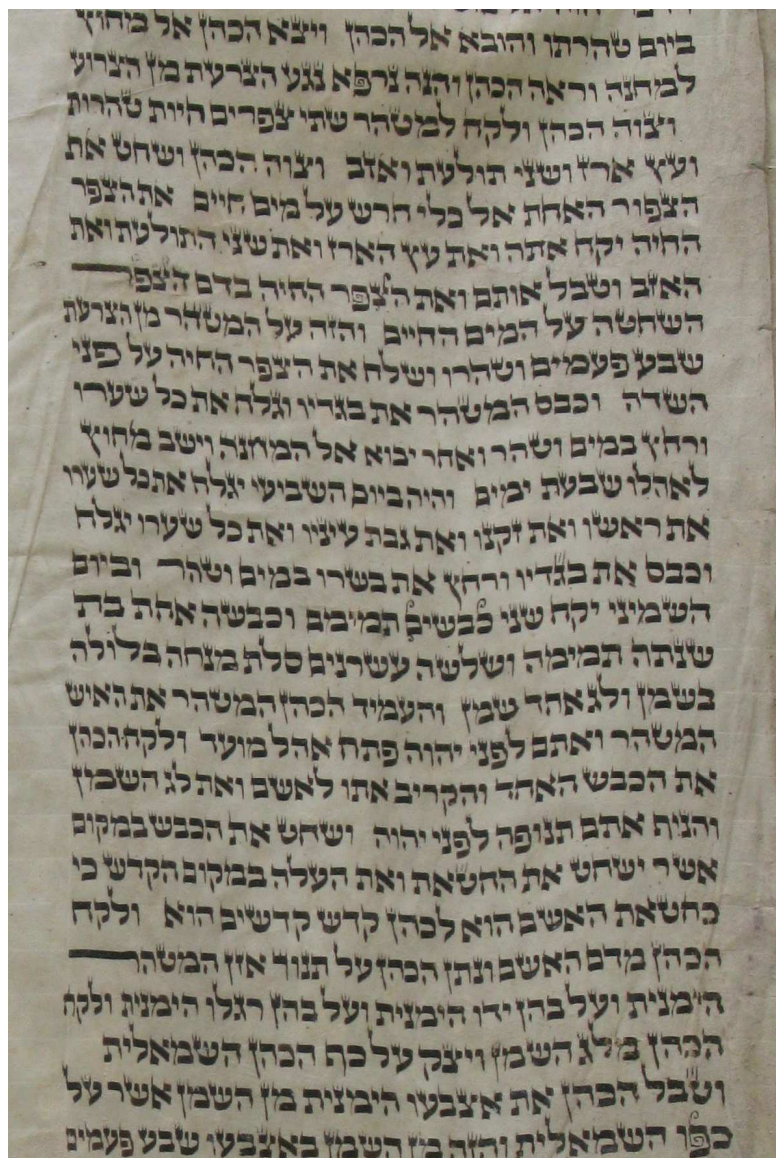 ביום טהרתו והובא אל הכהן ויצא הכהן אל מחוץ
למחנה וראה הכהן והנה נרפא נגע הצרעת מן הצרוע
וצוה הכהן ולקח למטהר שתי צפרים חיות טהרות
ועץ ארז ושני תולעת ואזב וצוה הכהן ושחט את
הצפור האחת אל כלי חרש על מים חיים את הצפר
החיה יקח אתה ואת עץ הארז ואת שני התולעת ואת
האזב וטבל אותם ואת הצפר החיה בדם הצפר
השחטה על המים החיים והזה על המטהר מן הצרעת
שבע פעמים וטהרו ושלח את הצפר החיה על פני
השדה וכבס המטהר את בגדיו וגלח את כל שערו
ורחץ במים וטהר ואחר יבוא אל המחנה וישב מחוץ
לאהלו שבעת ימים והיה ביום השביעי יגלח את כל שערו
את ראשו ואת זקנו ואת גבת עיניו ואת כל שערו יגלח
וכבס את בגדיו ורחץ את בשרו במים וטהר וביום
השמיני יקח שני כבשים תמימם וכבשה אחת בת
שנתה תמימה ושלשה עשרנים סלת מנחה בלולה
בשמן ולג אחד שמן והעמיד הכהן המטהר את האיש
המטהר ואתם לפני יהוה פתח אהל מועד ולקח הכהן
את הכבש האחד והקריב אתו לאשם ואת לג השמן
והניף אתם תנופה לפני יהוה ושחט את הכבש במקום
אשר ישחט את החטאת ואת העלה במקום הקדש כי
כחטאת האשם הוא לכהן קדש קדשים הוא ולקח
הכהן מדם האשם ונתן הכהן על תנוך אזן המטהר
הימנית ועל בהן ידו הימנית ועל בהן רגלו הימנית ולקח
הכהן מלג השמן ויצק על כף הכהן השמאלית
וטבל הכהן את אצבעו הימנית מן השמן אשר על
כפו השמאלית והזה מן השמן באצבעו שבע פעמים